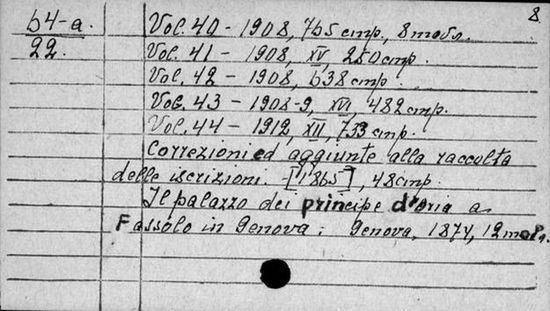 8
54-a. Vol. 40 - 1908, 765 cmp., 8 молл.
22. Vol. 41 - 1908, XV, 250 cmp.
Vol. 42 - 1908, 638 cmp.
Vol. 43 - 1908-9, XVI, 482 cmp.
Vol. 44 - 1912, XII, 733 cmp.
Correzioni ed aggiunte alla raccolta
delle iscrizioni. [1865], 48 cmp.
Il palazzo dei principe d'Oria a
Fassolo in Genova; Genova, 1874, 12